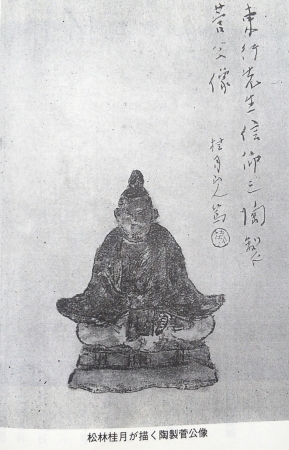 東行先生信仰之陶製
菅公像
桂月山人篤
松林桂月が描く陶製菅公像